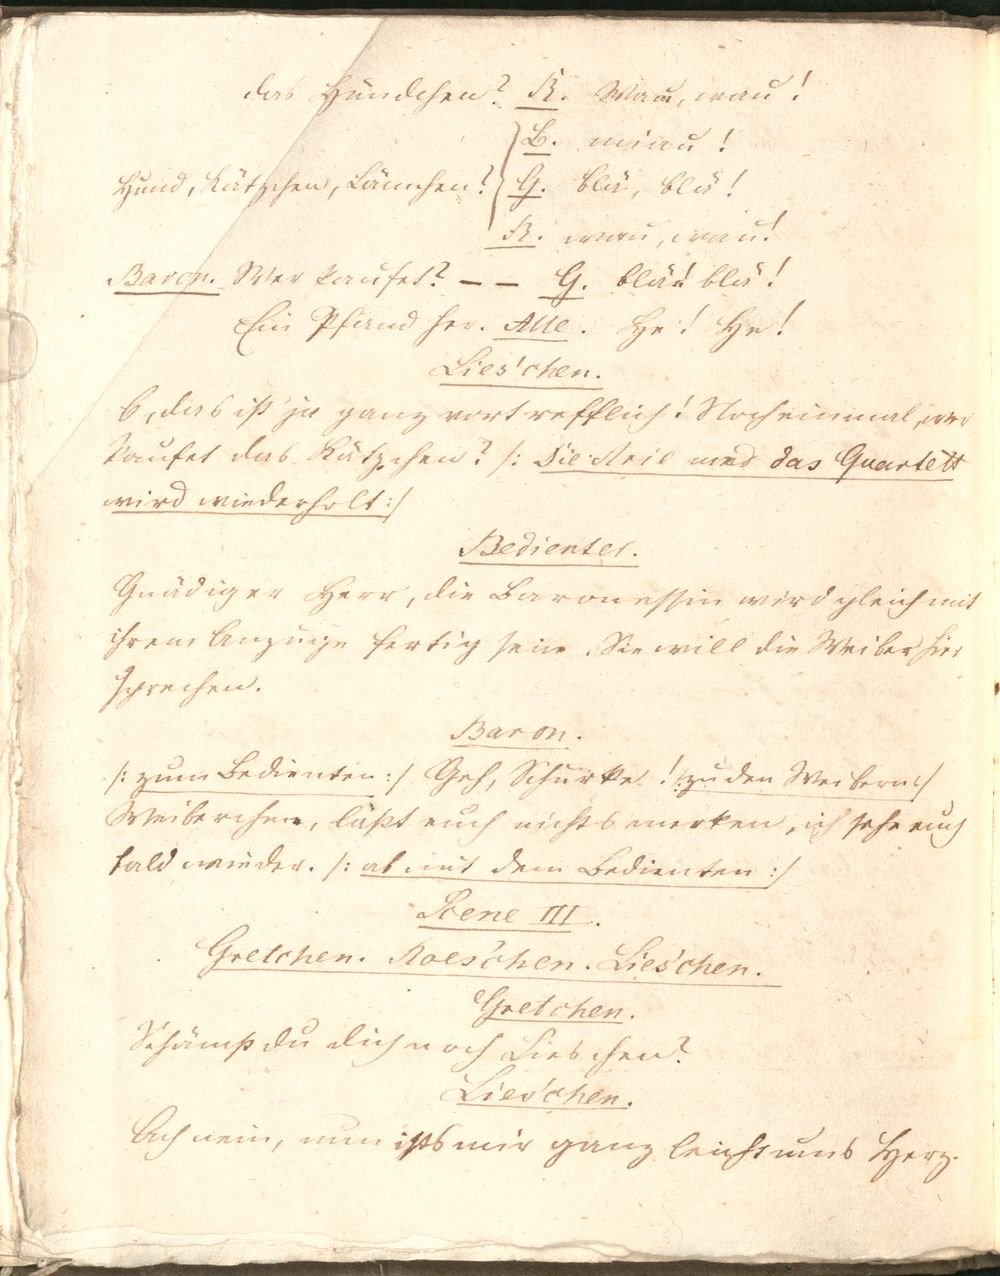 das Hündchen? R. Wau, wau!
B. miau!
Hund, Kätzchen, Lämchen? G. blä, blä!
R. wau, wau!
Baron. Wer kaufet? – – G. blä! blä!
Ein Pfand her. Alle. He! He!
Lies'chen.
O, das ist ja ganz vortrefflich! Noch einmal, wer
kaufet das Kätzchen? /: Die Arie und das Quartett
wird wiederholt :/
Bedienter.
Gnädiger Herr, die Baronessin wird gleich mit
ihrem Anzuge fertig sein. Sie will die Weiber hier
sprechen.
Baron.
/: zum Bedienten :/ Geh, Schurke! /: zu den Weibern :/
Weiberchen, laßt euch nichts merken, ich sehe euch
bald wieder. /: ab mit dem Bedienten :/
Scene III.
Gretchen. Roes'chen. Lies'chen.
Gretchen.
Schämst du dich noch Lieschen?
Lies'chen.
Ach nein, nun ists mir ganz leicht ums Herz.